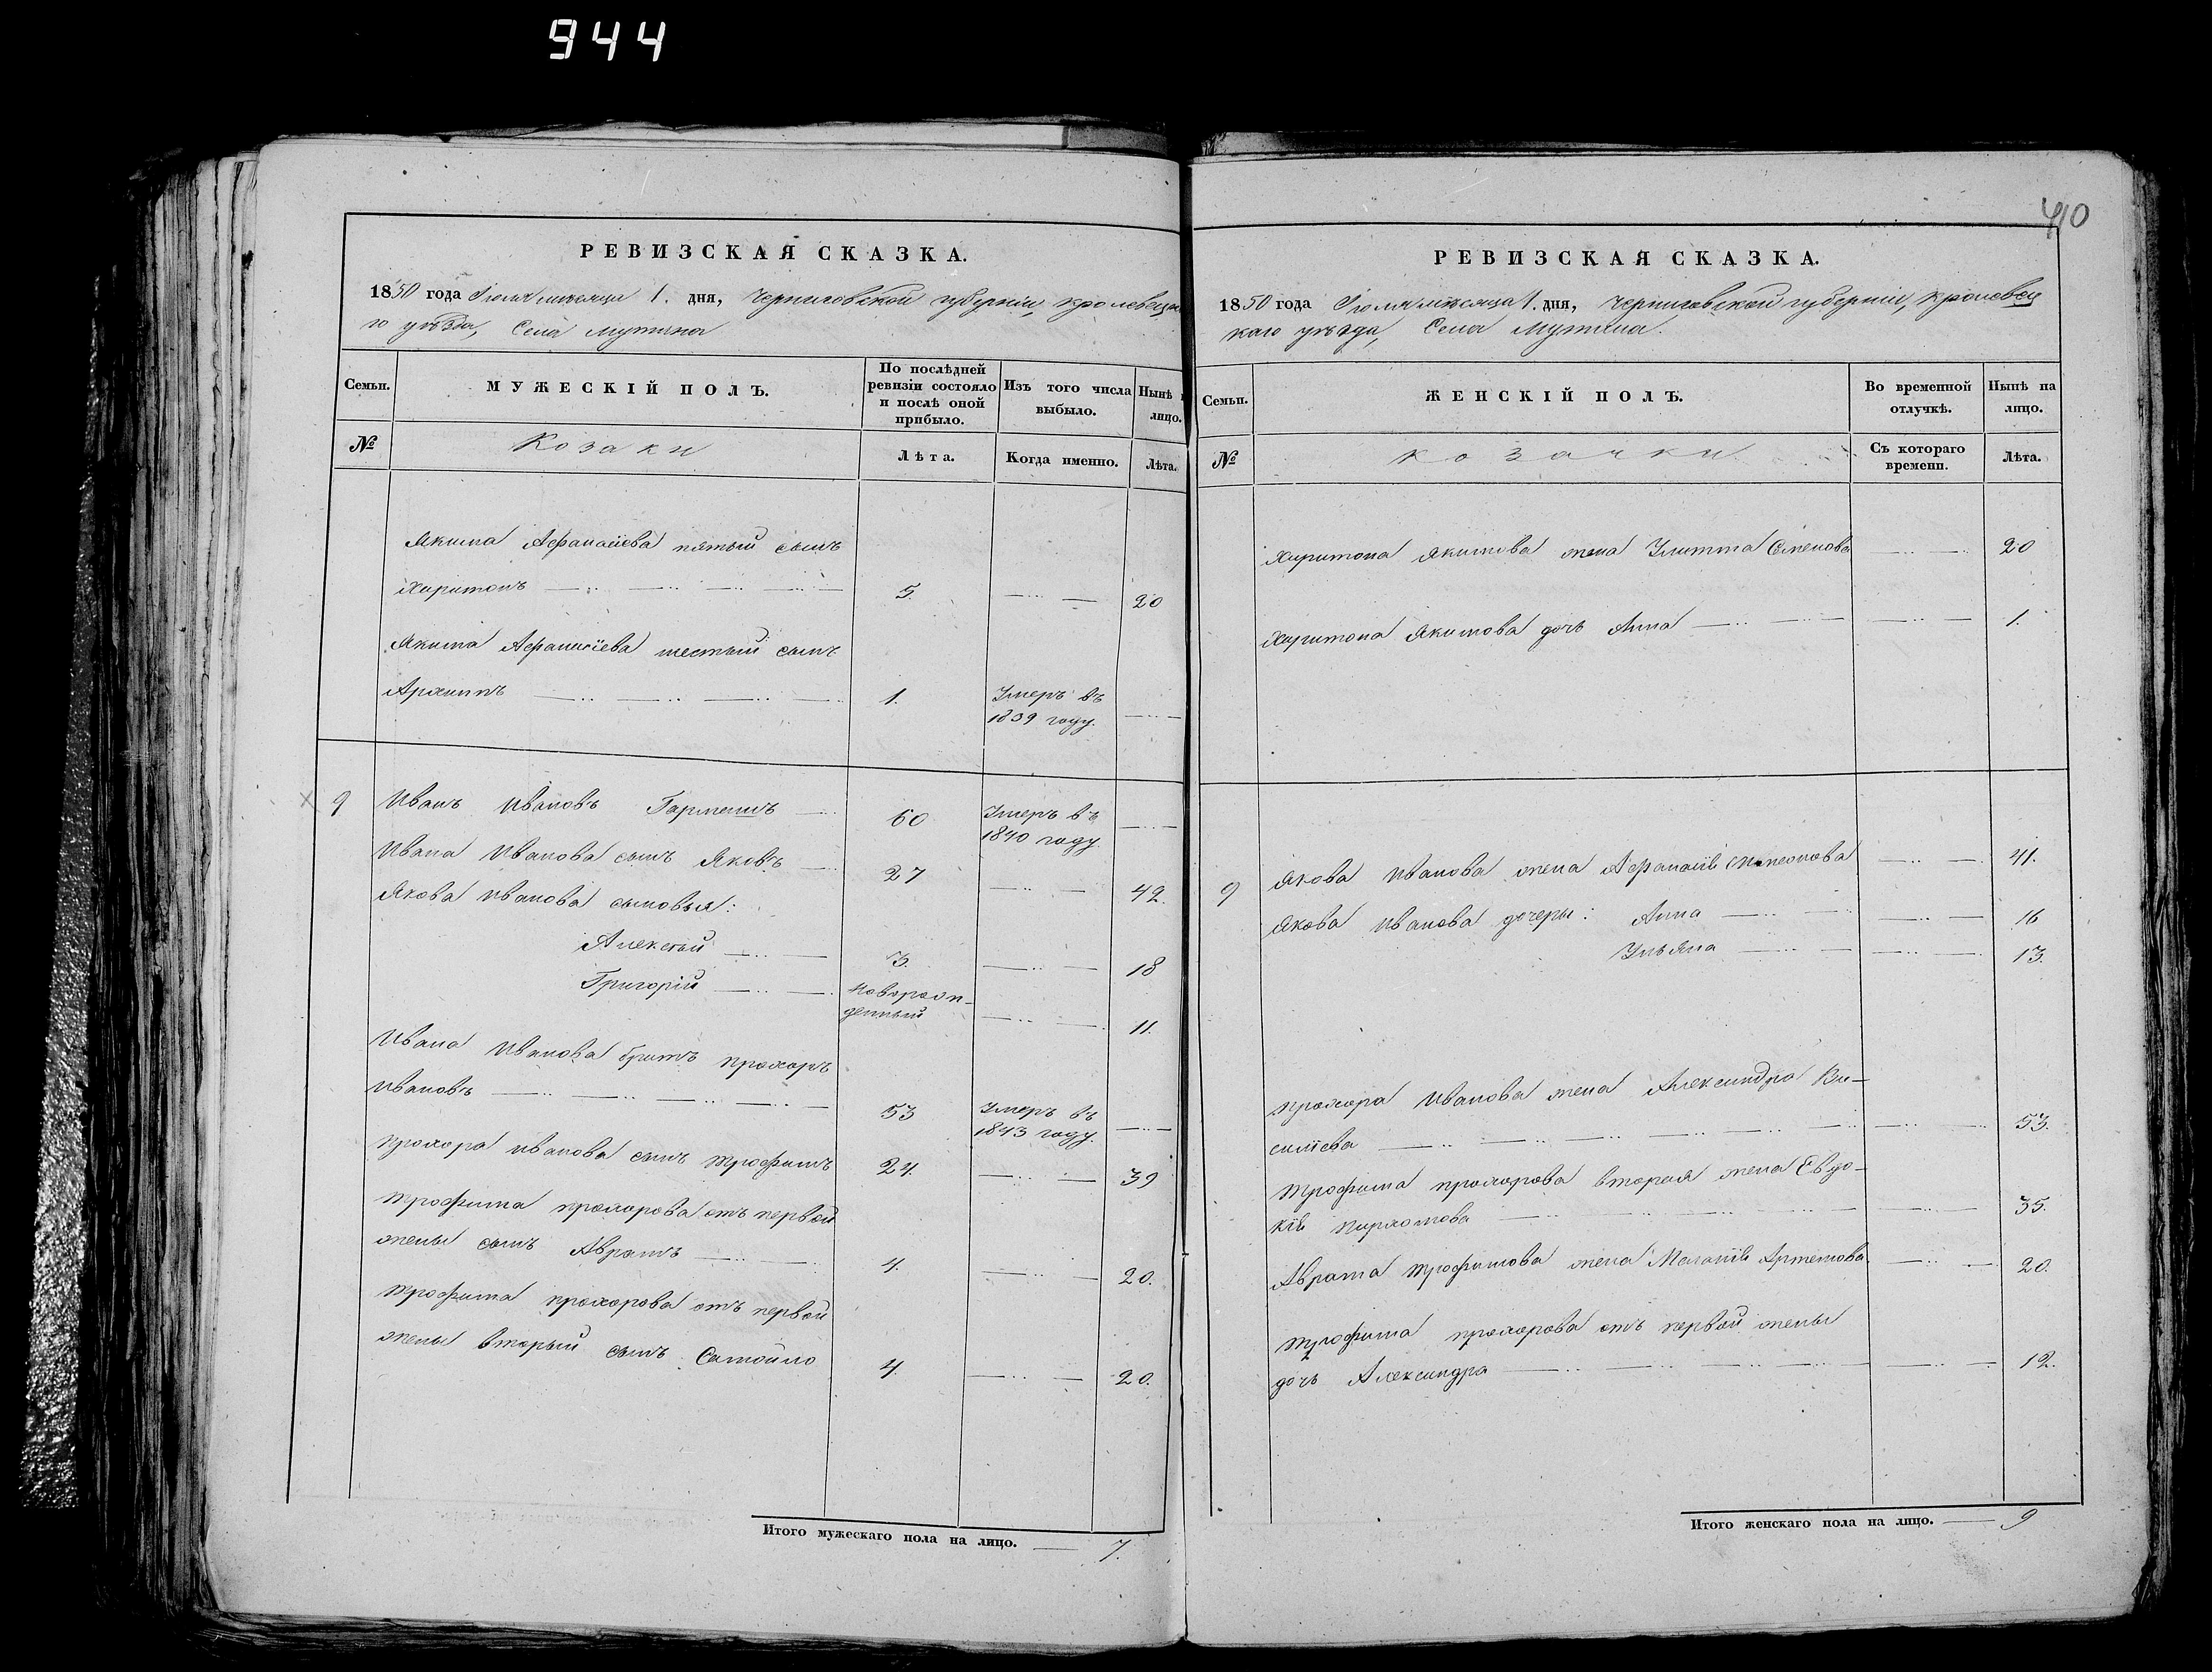 944
РЕВИЗСКАЯ СКАЗКА.
1850 года Іюля мѣсяца 1. дня, Черниговской губерніи, Кролевецка
го уѣзда, Села Мутина
Семьи.
МУЖЕСКІЙ ПОЛЪ.
По послѣдней ревизіи состояло и послѣ оной прибыло.
Изъ того числа выбыло.
Нынѣ
лицо.
№
Козаки
Лѣта.
Когда именно.
Лѣта.
Якима Афанасіева пятый сынъ
Харитонъ 5. 20
Якима Афанасіева шестый сынъ
Архипъ 1. Умеръ въ
1839 году.
9 Иванъ Ивановъ 60 Умеръ въ
1840 году.
Ивана Иванова сынъ Яковъ 27 42.
Якова Иванова сыновья:
Алексѣй 3. 18
Григорій Новорож-
денный 11.
Ивана Иванова братъ Прохоръ
Ивановъ 53 Умеръ въ
1843 году.
Прохора Иванова сынъ Трофимъ 24. 39
Трофима Прохорова отъ первой
жены сынъ Аврамъ 4. 20.
Трофима Прохорова отъ первой
жены вторый сынъ Самойло 4. 20.
Итого мужескаго пола на лицо. 7.
410
РЕВИЗСКАЯ СКАЗКА.
1850 года Іюля мѣсяца 1. дня, Черниговской губерніи, Кролевец
каго уѣзда, Села Мутина.
Семьи.
ЖЕНСКІЙ ПОЛЪ.
Во временной отлучкѣ.
Нынѣ на лицо.
№
Козачки
Съ котораго времени.
Лѣта.
Харитона Якимова жена Улита Семенова 20
Харитона Якимова дочь Анна 1.
9 Якова Иванова жена Афанасія 41.
Якова Иванова дочери: Анна 16
Ульяна 13.
Прохора Иванова жена Александра Ва-
силіева 53.
Трофима Прохорова вторая жена Евдо-
кія 35.
Аврама Трофимова жена Меланія Артемова 20.
Трофима Прохорова отъ первой жены
дочь Александра 12.
Итого женскаго пола на лицо. 9